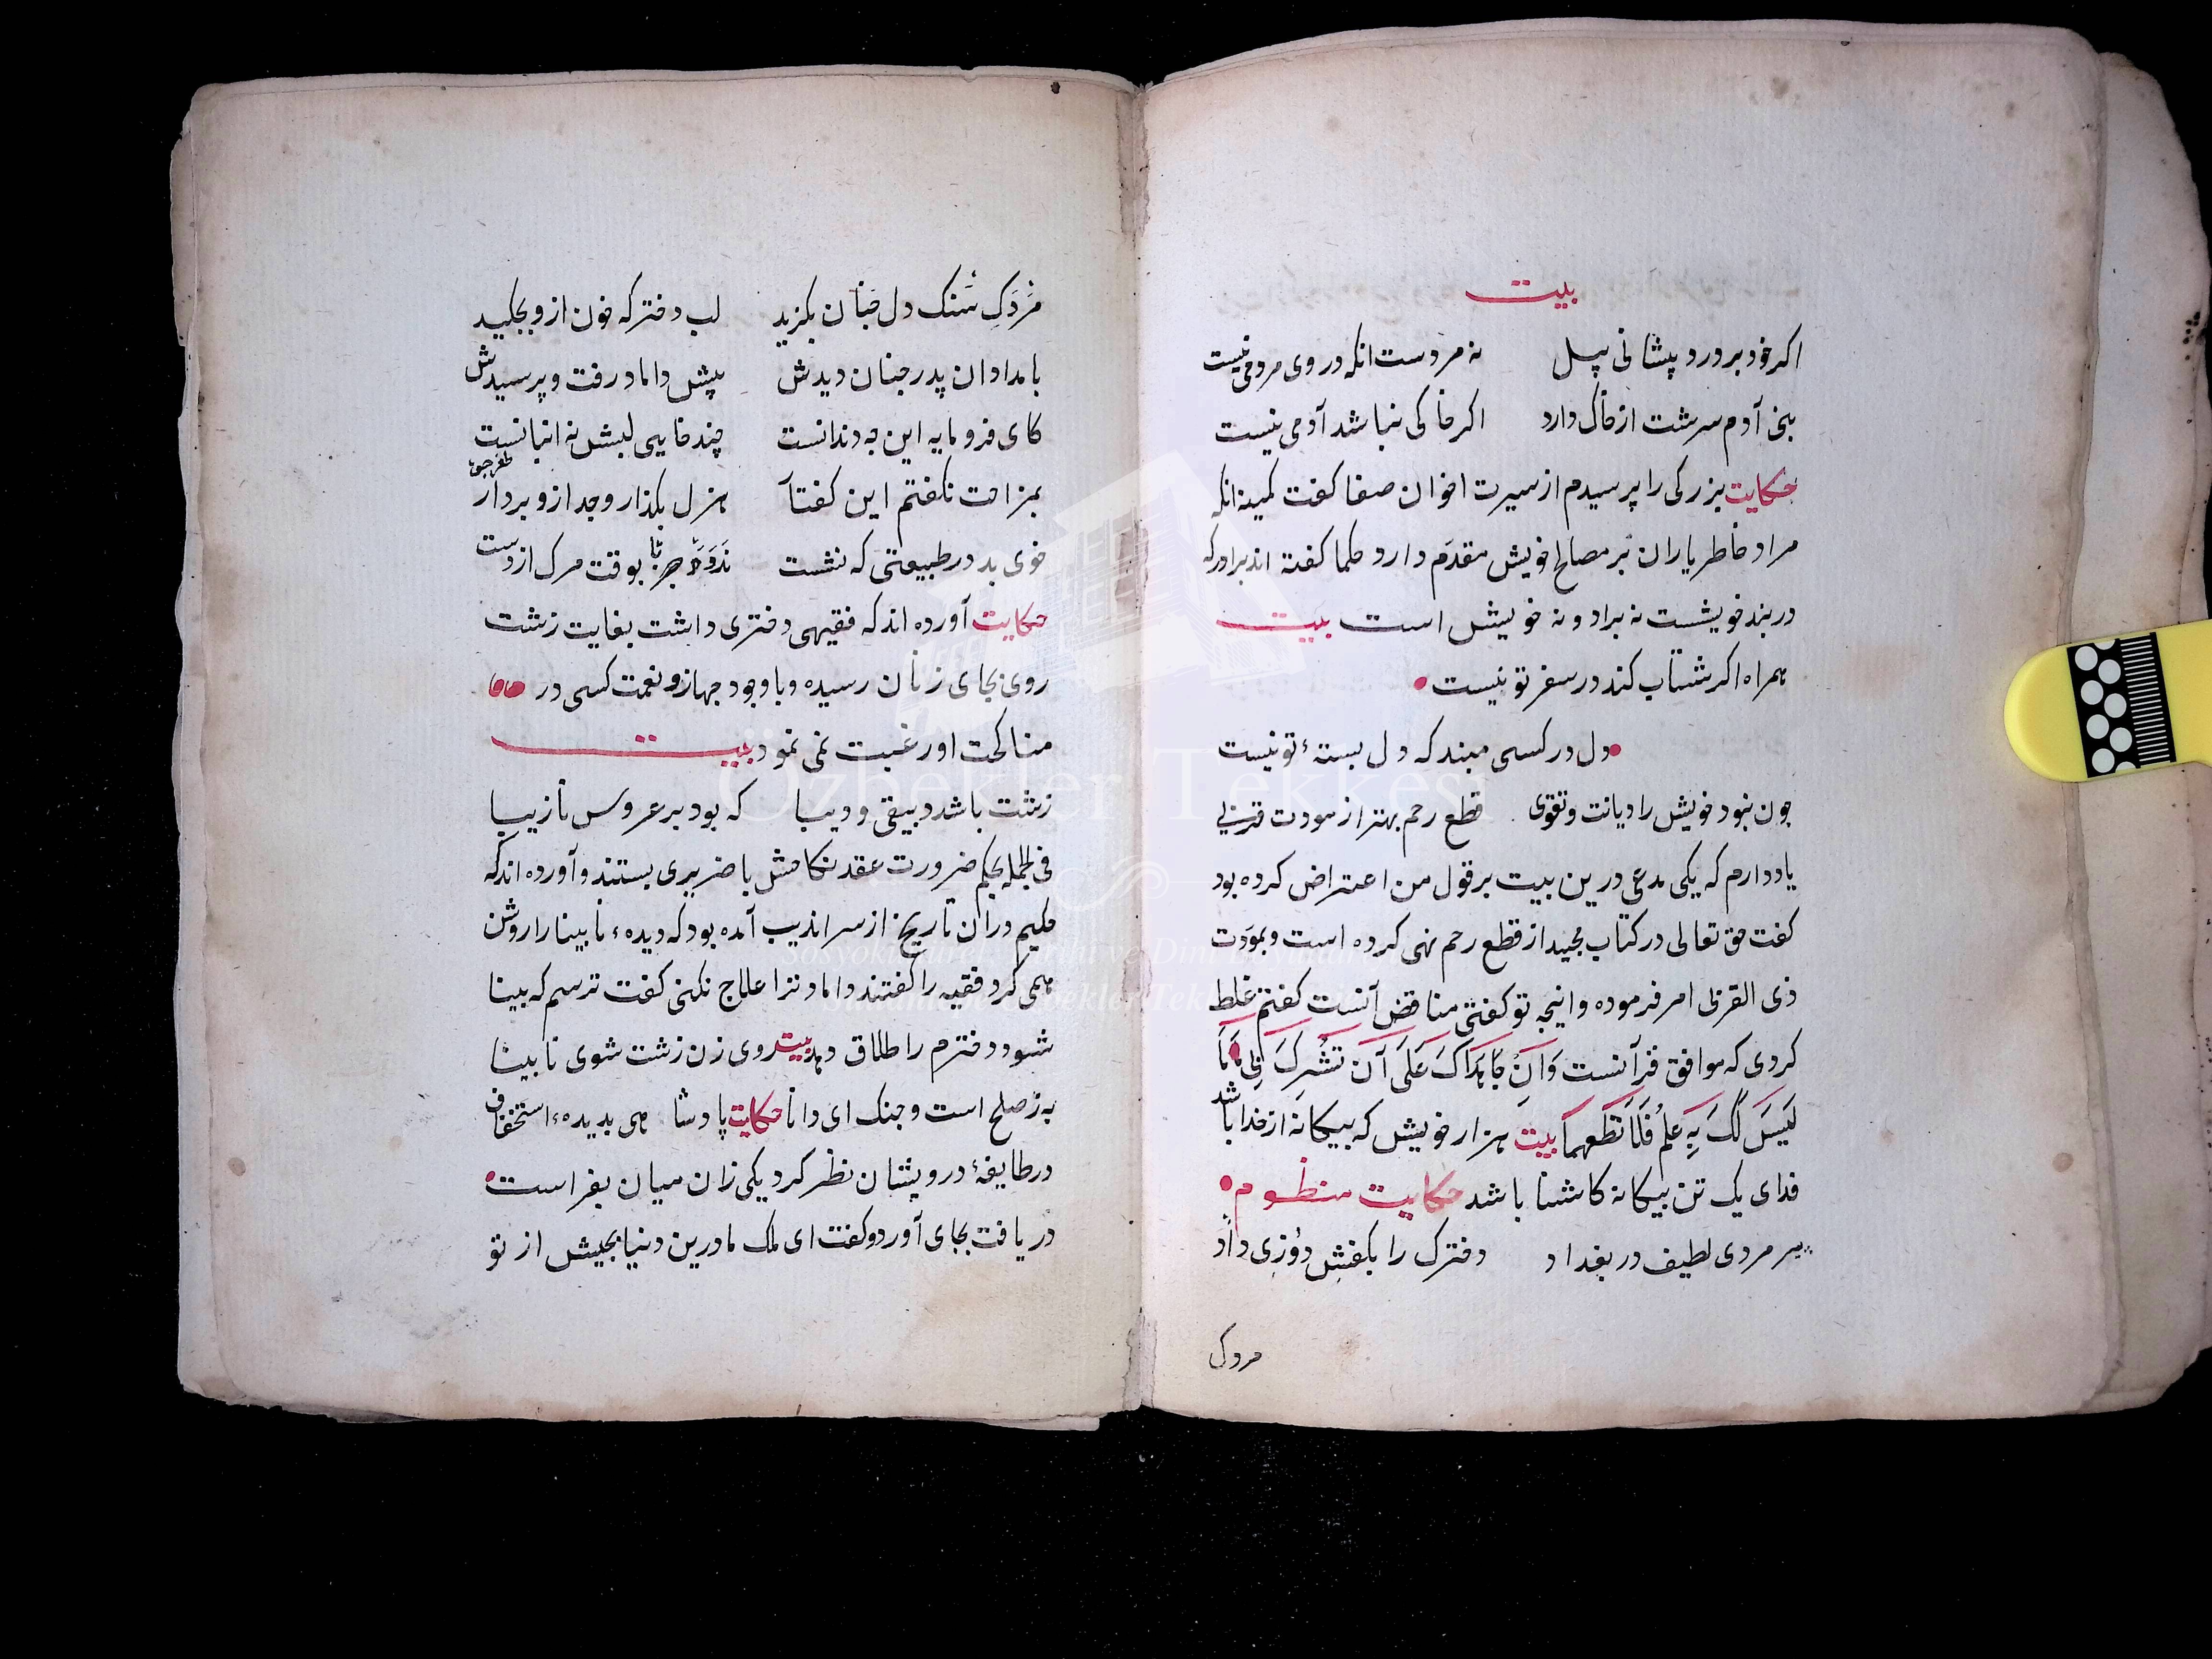 بیت
اکر خود بردرد پیشانی پیل نه مردست انکه در وی مردمی نیست
بنی آدم سرشت از خاک دارد اکر خاکی نباشد آدمی نیست
حکایت بزرکی را پرسیدم از سیرت اخوان صفا کفت کمینه انکه
مراد خاطر یاران بر مصالح خویش مقدم دارد حکما کفته اند برادرکه
در بند خویشست نه برادر و نه خویش است بیت
همراه اکر شتاب کند در سفر تو نیست
دل در کسی مبند که دل بستهٔ تو نیست
چون نبود خویش را دیانت و تقوی قطع رحم بهتر از مودت قربی
یاد دارم که یکی مدعی درین بیت بر قول من اعتراض کرده بود
کفت حق تعالی در کتاب مجید از قطع رحم نهی کرده است و بمودت
ذی القربی امر فرموده و اینچه تو کفتی مناقض آنست کفتم غلط
کردی که موافق قرآنست وَاِنْ جَاهَدَاکَ عَلَی آن تُشْرِکَ بِی مَا
لَیْسَ لَکَ بِهِ عِلْمٌ فَلَا تُطِعْهُمَا بیت هزار خویش که بیکانه از خدا باشد
فدای یک تن بیکانه کاشنا باشد حکایت منظوم
پیر مردی لطیف در بغداد دخترک را بکفش دوزی داد
مردک
مَرْدَکِ سَنک دل چنان بکزید لب دختر که خون ازو بچکید
بامدادان پدر چنان دیدش پیش داماد رفت و پرسیدش
کای فرومایه این چه دندانست چند خایی لبش نه انبانست
بمزاحت نکفتم این کفتار هزل بکذار و جد ازو بردار
خوی بد در طبیعتی که نشست ندود جز تا بوقت مرک از دست
حکایت آورده اند که فقیهی دختری داشت بغایت زشت
روی بجای زنان رسیده و با وجود جهاز و نعمت کسی در
مناکحت او رغبت نمی نمود بیت
زشت باشد دبیقی و دیبا که بود بر عروس نازیبا
فی الجمله بحکم ضرورت عقد نکاحش با ضریری بستند و آورده اند که
حکیم در ان تاریخ از سراندیب آمده بود که دیدهء نابینا را روشن
همی کرد فقیه را کفتند داماد ترا علاج نکنی کفت ترسم که بینا
شود و دخترم را طلاق دهد بیت روی زن زشت شوی نابینا
به ز صلح است و جنک ای دانا حکایت پادشاهی بدیدهء استخفاف
در طایفهٔ درویشان نظر کرد یکی زان میان بفراست
دریافت بجای آورد و کفت ای ملک ما درین دنیا بجیش از تو